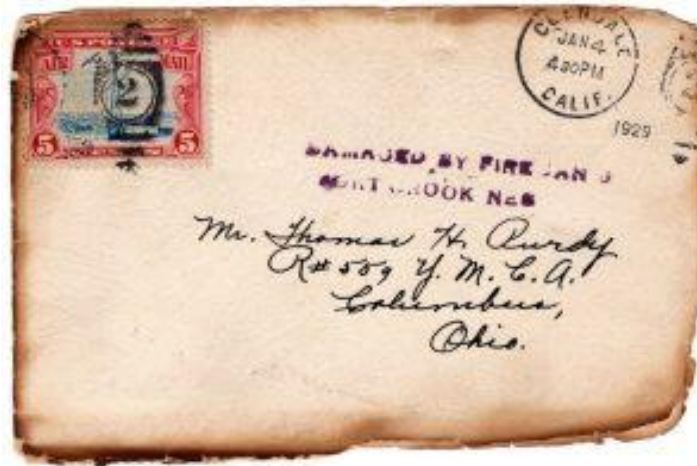 U.S. POSTAGE
AIR MAIL
2
5 5
GLENDALE
JAN 4
4 30 PM
CALIF.
1929
DAMAGED BY FIRE JAN 5
FORT CROOK NEB
Mr. Thomas H. Purdy
R# 559 Y. M. C. A.
Columbus,
Ohio.